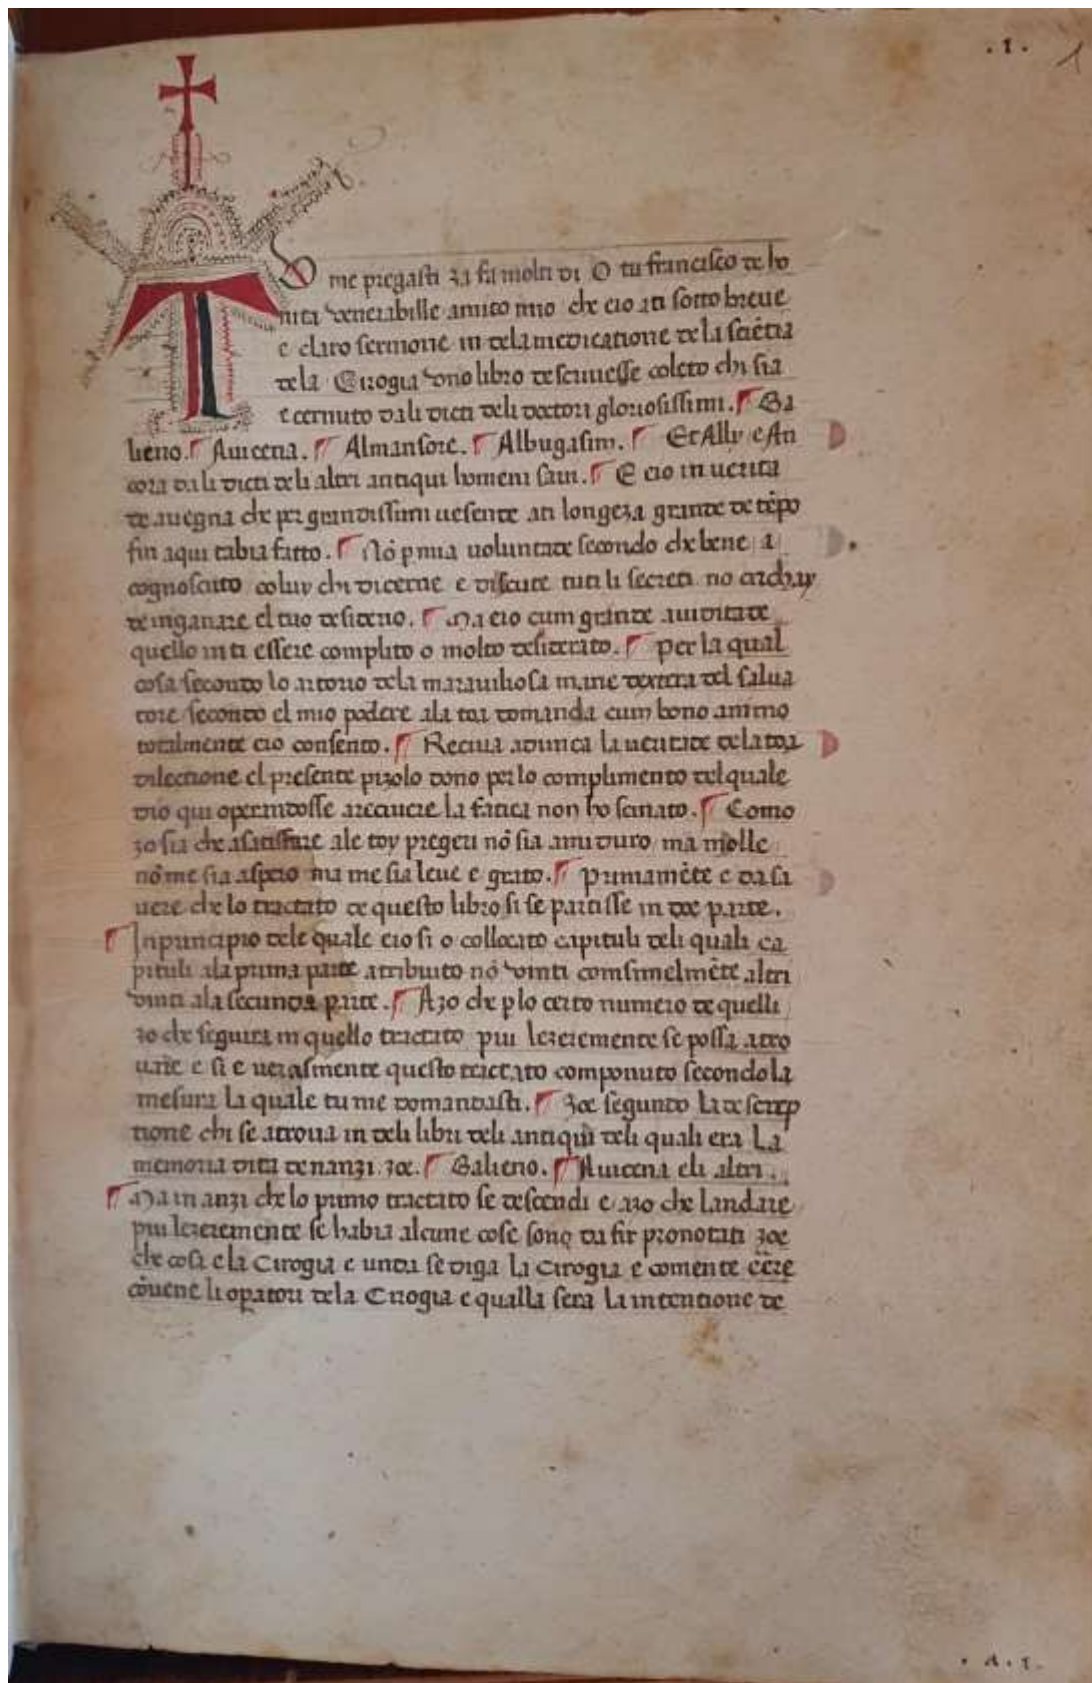 .1. 1
T
U me pregasti za fa molti di O tu francisco de bo
nita venerabille amico mio che cio a ti sotto breue
e claro sermone in dela medicatione de la sciẽtia
de la Cirogia vno libro descriuesse coleto chi sia
e cernuto da li dicti deli doctori gloriosissimi. Ga
lieno. Auicena. Almansore. Albugasim. Et Ally e An
cora da li dicti deli altri antiqui homeni saui. E cio in uerita
de auegna che per grandissimi uesente ati longeza grande de tẽpo
fin a qui tabia fatto. Nõ p mia voluntade secondo che bene a
cognosciuto coluy chi dicerne e discute tuti li secreti no
de inganare el tuo desiderio. Ma cio cum grande auiditade
quello in ti essere complito o molto desiderato. per la qual
cosa secondo lo adiutorio dela marauiliosa mane dextera del salua
tore secondo el mio podere ala toa domanda cum bono animo
totalmente cio consento. Receua adunca la ueritade dela toa
dilectione el presente pizolo dono per lo complimento del quale
dio qui operandosse a receuere la fatica non ho schiuato. Como
zo sia che a satisfare ale toy pregeri nõ sia a mi duro ma molle
nõ me sia aspero ma me sia leue e grato. primamẽte e da sa
uere che lo tractato de questo libro si se partisse in doe parte.
In principio dele quale cio si o collocato capituli deli quali ca
pituli ala prima parte atribuito nõ vinti comsimelmẽte altri
vinti ala secunda parte. Azo che p lo certo numero de quelli
zo che seguira in quello tractato piu lezeremente se possa atro
uare e si e uerasmente questo tractato componuto secondo la
mesura la quale tu me domandasti. zoe segundo la descrip
tione chi se atroua in deli libri deli antiqui deli quali era La
memoria dita denanzi. zoe. Galieno. Auicena eli altri.
Ma in anzi che lo primo tractato se descendi e azo che landare
piu lezeremente se habia alcune cose sono da fir pronotati zoe
che cosa e la Cirogia e unda se diga la Cirogia e comente eẽre
cõuene li opatori dela Cirogia e qualla sera la intentione de
. a . 1 .